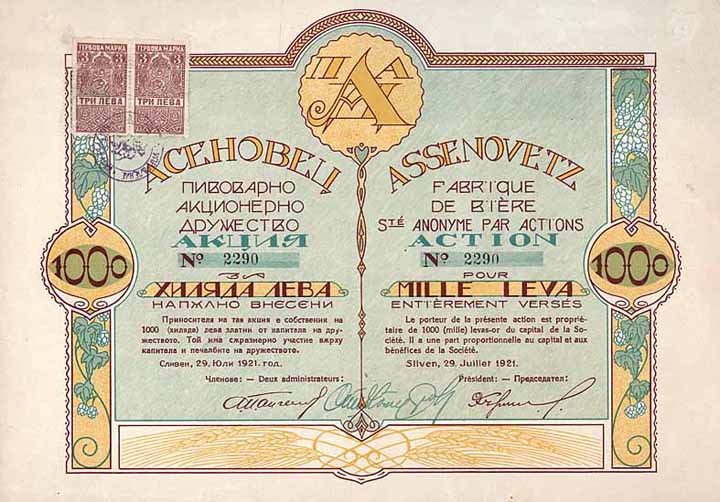 ГЕРБОВА МАРКА ГЕРБОВА МАРКА
3 3 3 3
ТРИ ЛЕВА ТРИ ЛЕВА
АСЕНОВЕЦ
ПИВОВАРНО
АКЦИОНЕРНО
ДРУЖЕСТВО
АКЦИЯ
№ 2290
ЗА
ХИЛЯДА ЛЕВА
НАПѪЛНО ВНЕСЕНИ
Приносителя на тая акция е собственик на
1000 (хиляди) лева златни от капитала на дру-
жеството. Той има съразмерно участие върху
капитала и печалбите на дружеството.
Сливен, 29. Юли 1921. год.
Членове: — Deux administrateurs:
ASSENOVETZ
FABRIQUE
DE BIÈRE
STÉ ANONYME PAR ACTIONS
ACTION
№ 2290
POUR
MILLE LEVA
ENTIÈREMENT VERSÉS
Le porteur de la présente action est proprié-
taire de 1000 (mille) levas-or du capital de la So-
ciété. Il a une part proportionelle au capital et aux
bénéfices de la Société.
Sliven, 29. Juillet 1921.
Président: — Председател:
1000
1000